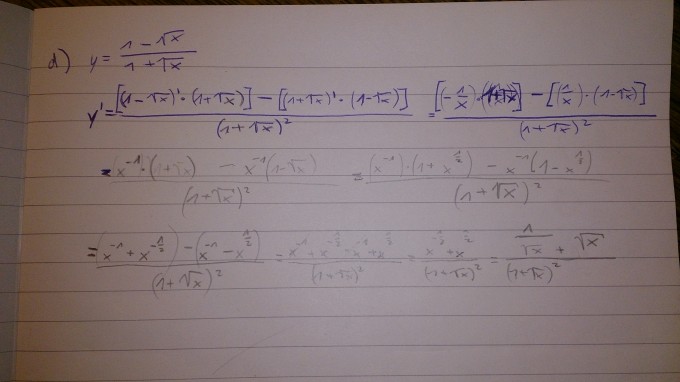 d) y = (1 - √x)/(1 + √x)
y' = [(1-√x)'·(1+√x)] - [(1+√x)'·(1-√x)]/(1+√x)² = [(-1/x)·(1+√x)] - [(1/x)·(1-√x)]/(1+√x)²
= (x⁻¹)·(1+√x) - x⁻¹(1-√x)/(1+√x)² = (x⁻¹)·(1+x^½) - x⁻¹(1-x^½)/(1+√x)²
= (x⁻¹+x^-½) - (x⁻¹-x^½)/(1+√x)² = /(1+√x)² = /(1+√x)² = 1/√x + √x/(1+√x)²